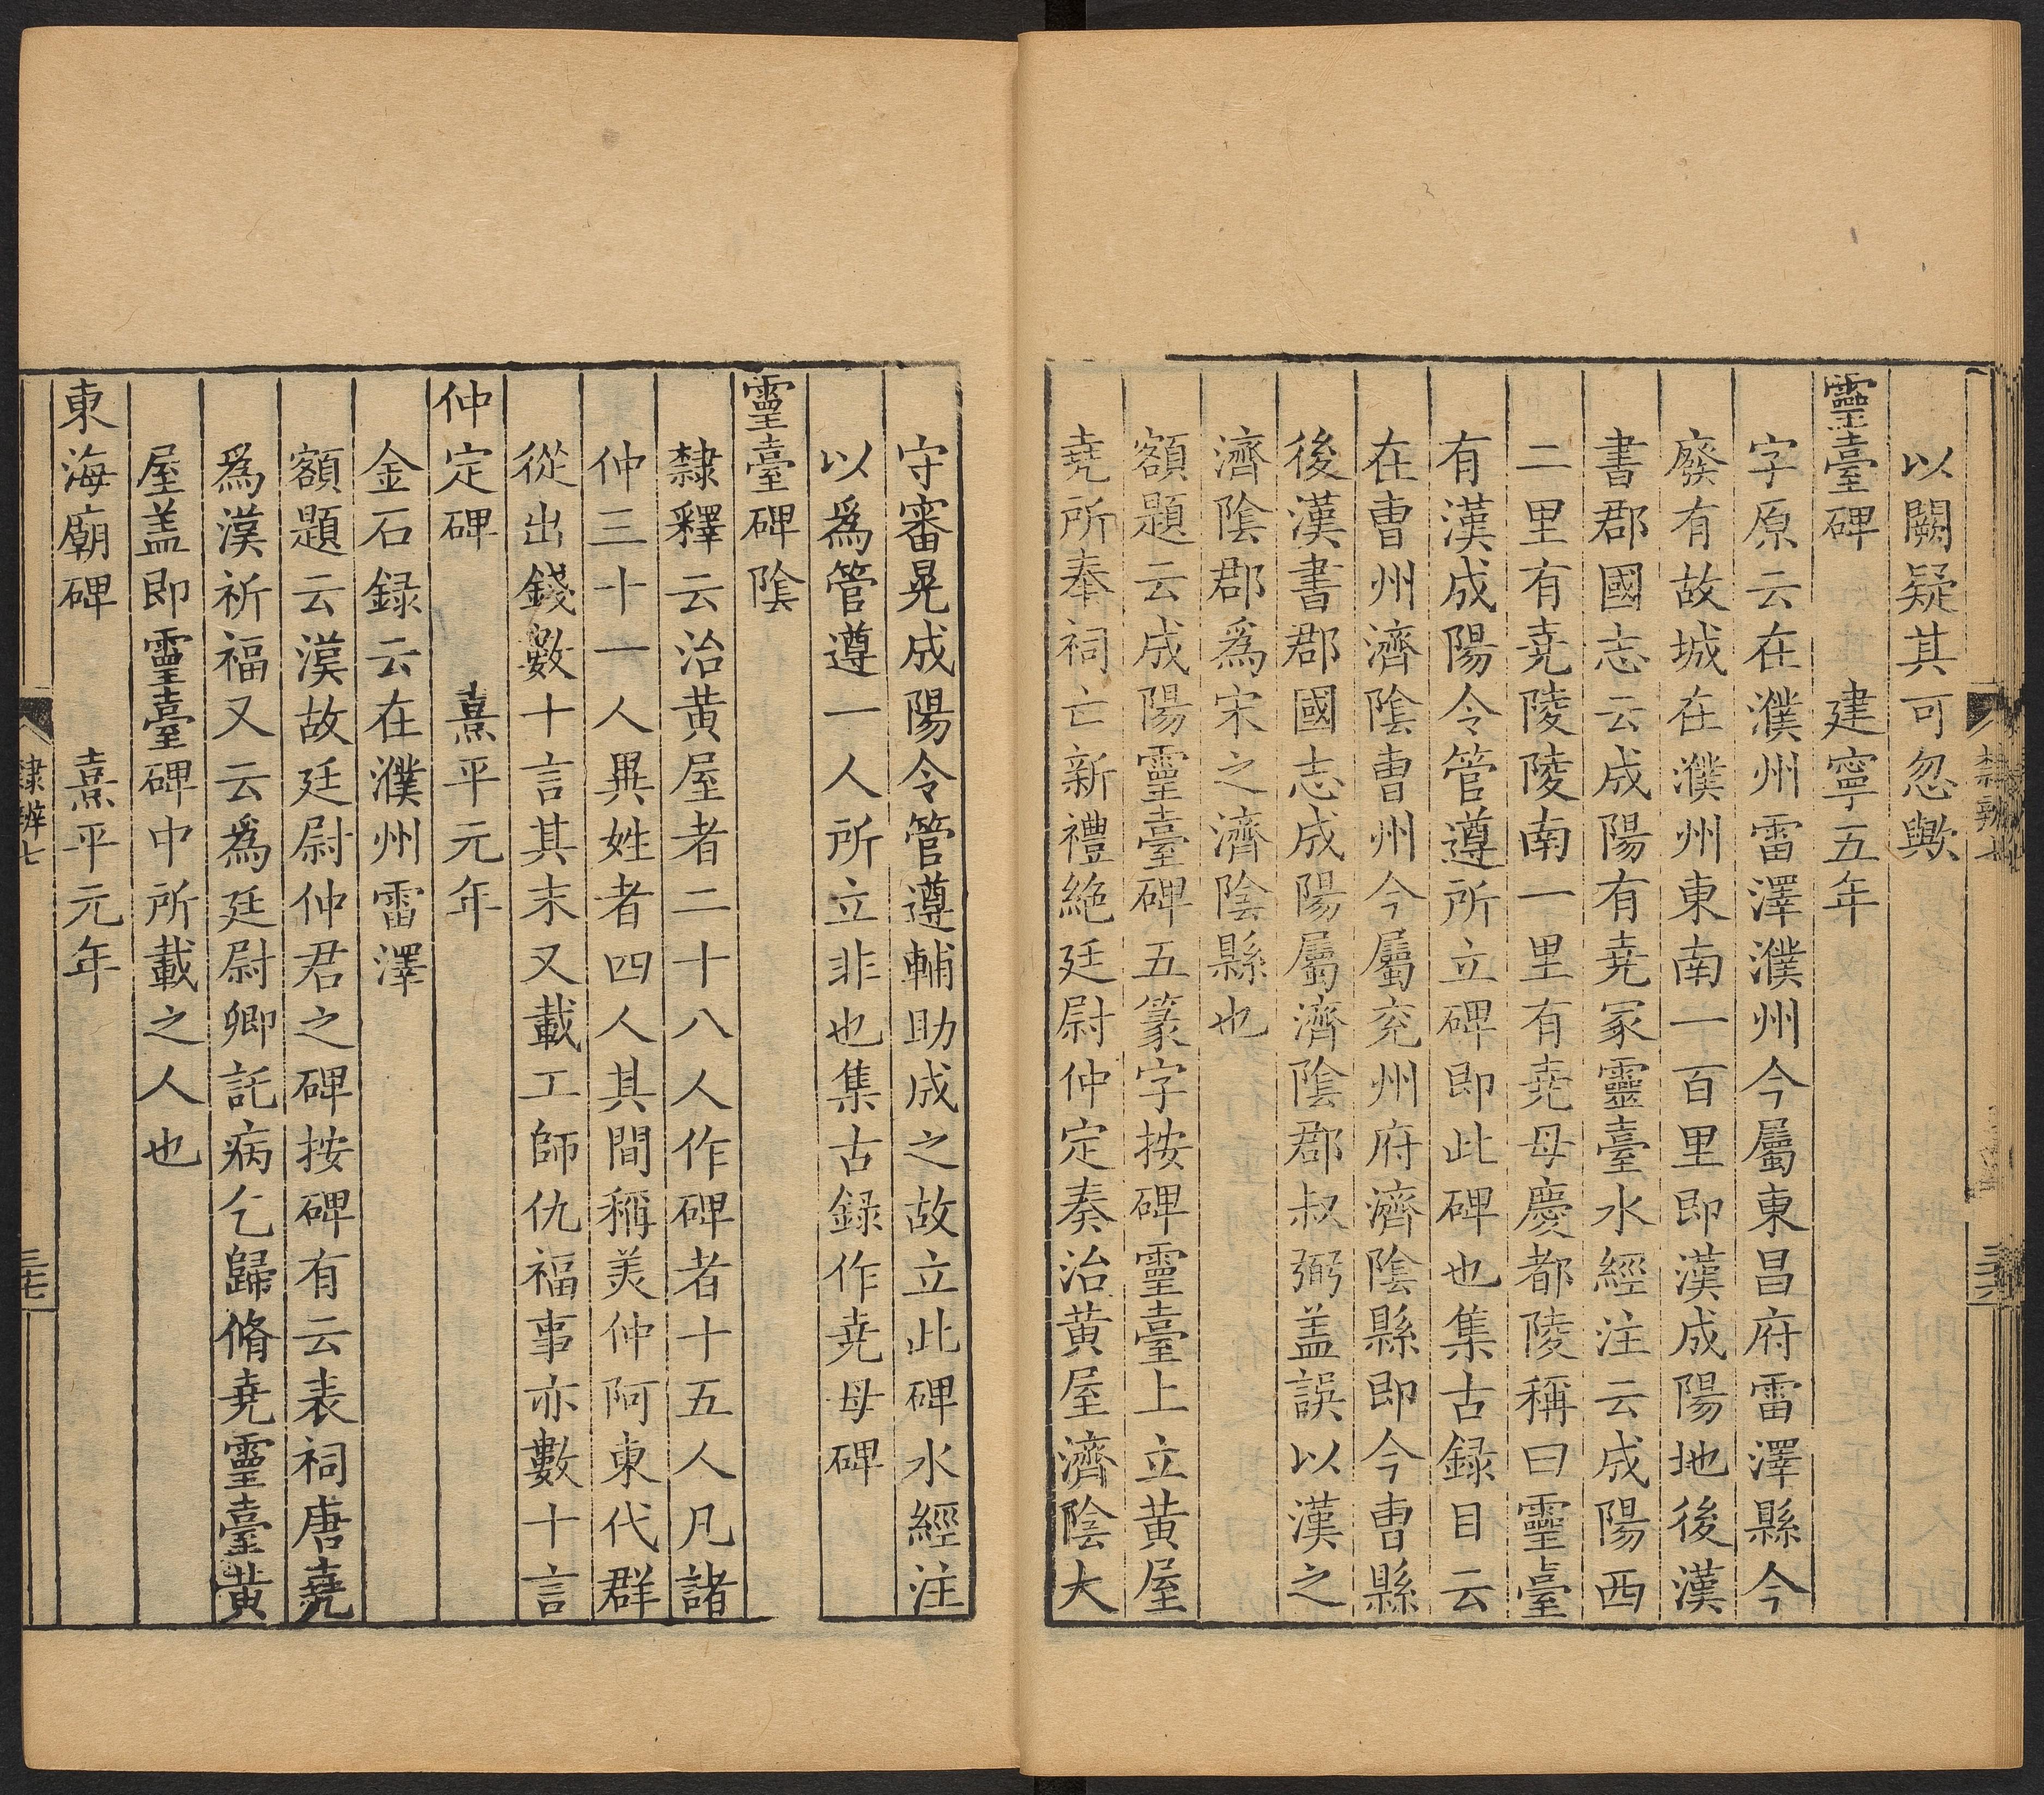 以闕疑其可忽歟
靈臺碑 建寧五年
字原云在濮州雷澤濮州今屬東昌府雷澤縣今
廢有故城在濮州東南一百里即漢成陽地後漢
書郡國志云成陽有堯冢靈臺水經注云成陽西
二里有堯陵陵南一里有堯母慶都陵稱曰靈臺
有漢成陽令管遵所立碑即此碑也集古録目云
在曹州濟隂曹州今屬兖州府濟隂縣即今曹縣
後漢書郡國志成陽屬濟隂郡叔弼盖誤以漢之
濟隂郡爲宋之濟隂縣也
額題云成陽靈臺碑五篆字按碑靈臺上立黄屋
堯所奉祠亡新禮絶廷尉仲定奏治黄屋濟隂大
隸辨七
三十六
守審晃成陽令管遵輔助成之故立此碑水經注
以爲管遵一人所立非也集古録作堯母碑
靈臺碑隂
隸釋云治黄屋者二十八人作碑者十五人凡諸
仲三十一人異姓者四人其間稱美仲阿東代群
從出錢數十言其末又載工師仇福事亦數十言
仲定碑 熹平元年
金石録云在濮州雷澤
額題云漢故廷尉仲君之碑按碑有云表祠唐堯
爲漢祈福又云爲廷尉卿託病乞歸脩堯靈臺黄
屋盖即靈臺碑中所載之人也
東海廟碑 熹平元年
隸辨七
三十七